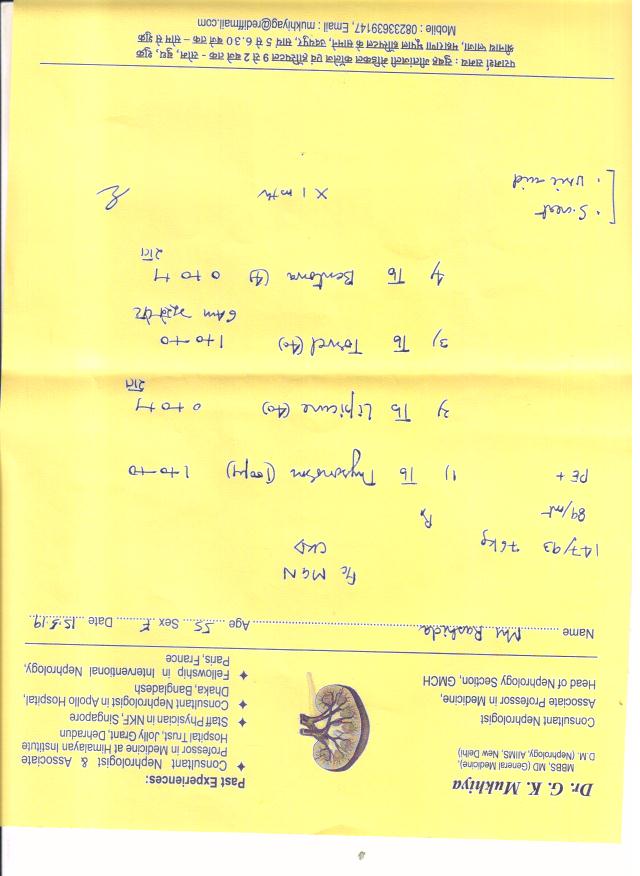 Dr. G. K. Mukhiya
MBBS, MD (General Medicine),
D.M. (Nephrology, AIIMS, New Delhi)
Consultant Nephrologist
Associate Professor in Medicine,
Head of Nephrology Section, GMCH
Past Experiences:
✦ Consultant Nephrologist & Associate
Professor in Medicine at Himalayan Institute
Hospital Trust, Jolly Grant, Dehradun
✦ Staff Physician in NKF, Singapore
✦ Consultant Nephrologist in Apollo Hospital,
Dhaka, Bangladesh
✦ Fellowship in Interventional Nephrology,
Paris, France.
Name Mrs Rashida Age 55 Sex F Date 15.5.19
MGN
CKD
147/93 76kg
89/mt
Rx
PE +
1) Tb (100µg) 1 to to
2) Tb Lipicure (40) 0 to +1
रात
3) Tb (40) 1 to to
6 Am
4) Tb Bentova (4) 0 to +1
रात
X 1 mth
S. creat
Uric acid
परामर्श समय : सुबह गीतांजली मेडिकल कॉलेज एवं हॉस्पिटल 9 से 2 बजे तक - सोम, बुध, शुक्र
श्रीनाथ प्लाजा, महाराणा भूपाल हॉस्पिटल के सामने, उदयपुर, सायं 5 से 6.30 बजे तक – सोम से शुक्र
Mobile : 08233639147, Email : mukhiyag@rediffmail.com